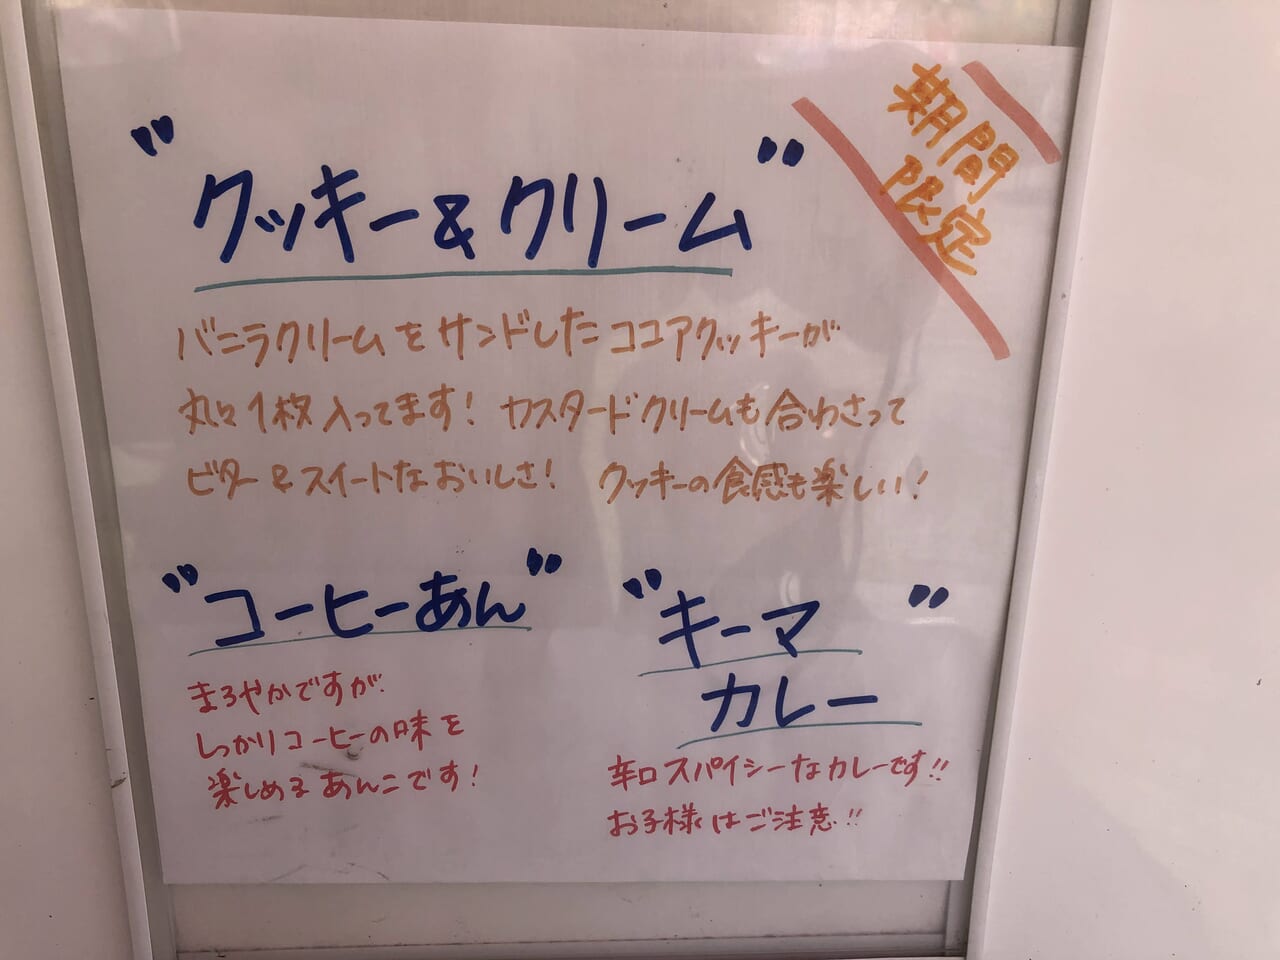 期間
限定
"クッキー&クリーム"
バニラクリームをサンドしたココアクッキーが
丸々1枚入ってます! カスタードクリームも合わさって
ビター&スイートなおいしさ! クッキーの食感も楽しい!
"コーヒーあん"
まろやかですが
しっかりコーヒーの味を
楽しめるあんこです!
"キーマ"
カレー
辛口スパイシーなカレーです!!
お子様はご注意!!